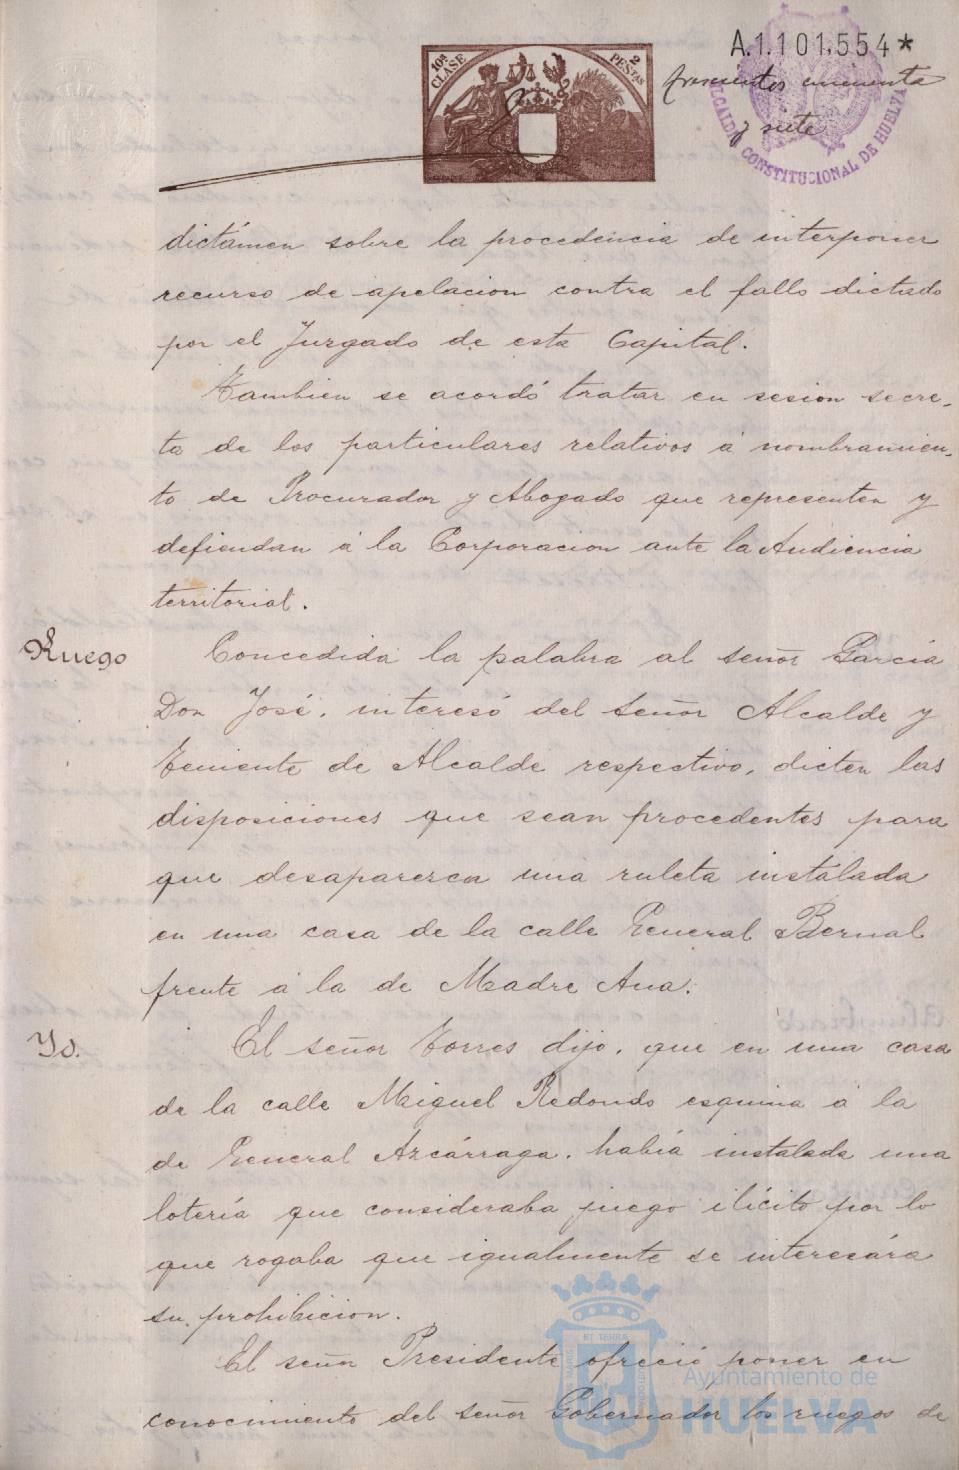 A.1.101,554*
10ª CLASE
2 PESTAS
trescientos cincuenta
y siete
ALCALDIA CONSTITUCIONAL DE HUELVA
dictámen sobre la procedencia de interponer
recurso de apelacion contra el fallo dictado
por el Juzgado de esta Capital.
Tambien se acordó tratar en sesion secre-
ta de los particulares relativos á nombramien-
to de Procurador y Abogado que representen y
defiendan á la Corporacion ante la Audiencia
territorial.
Ruego
Concedida la palabra al señor Garcia
Don José, interesó del señor Alcalde y
Teniente de Alcalde respectivo, dicten las
disposiciones que sean procedentes para
que desaparezca una ruleta instalada
en una casa de la calle General Bernal
frente á la de Madre Ana.
Yd.
El señor Torres dijo, que en una casa
de la calle Miguel Redondo esquina á la
de General Azcárraga, había instalada una
lotería que consideraba juego ilícito por lo
que rogaba que igualmente se interesára
su prohibicion.
El señor Presidente ofreció poner en
conocimiento del señor Gobernador los ruegos de
Ayuntamiento de
HUELVA